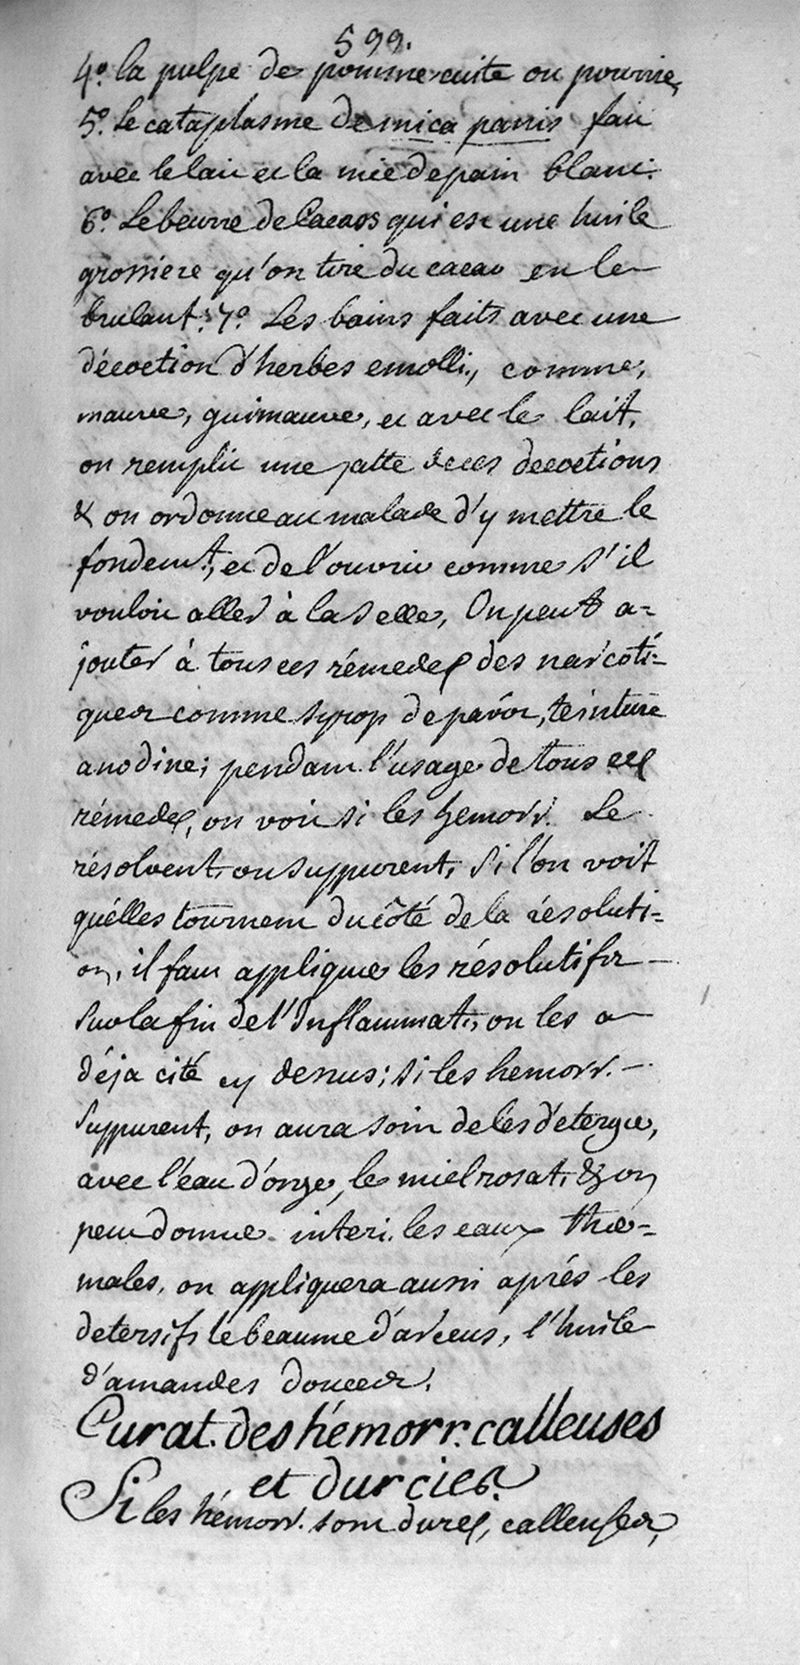 599.
4.° la pulpe de pomme cuite ou pourrie,
5.° Le cataplasme de mica panis fait
avec le lait et la mie de pain blanc.
6.° Le beurre de Cacaos qui est une huile
grossiere qu'on tire du cacao en le
brulant: 7.° Les bains faits avec une
décoction d'herbes emolli., comme,
mauve, guimauve, et avec le lait,
on remplit une jatte de ces decoctions
& on ordonne au malade d'y mettre le
fondemt, et de l'ouvrir comme s'il
vouloit aller à la selle, On peut a-
jouter à tous ces rémedes des narcoti-
ques comme syrop de pavôt, teinture
anodine; pendant l'usage de tous ces
rémedes, on voit si les hemorr. Se
résolvent, ou suppurent, Si l'on voit
qu'elles tournent du côté de la résoluti-
on, il faut appliquer les résolutifs
Sur la fin de l'Inflammat., on les a
déja cité cy dessus; si les hemorr.
Suppurent, on aura soin de les déterger,
avec l'eau d'orge, le miel rosat, & on
peut donner interi. les eaux ther-
males, on appliquera aussi aprés les
detersifs le beaume d'arceus, l'huile
d'amandes douces.
Curat. des hémorr. calleuses
et durcies.
Si les hémorr. sont dures, calleuses,